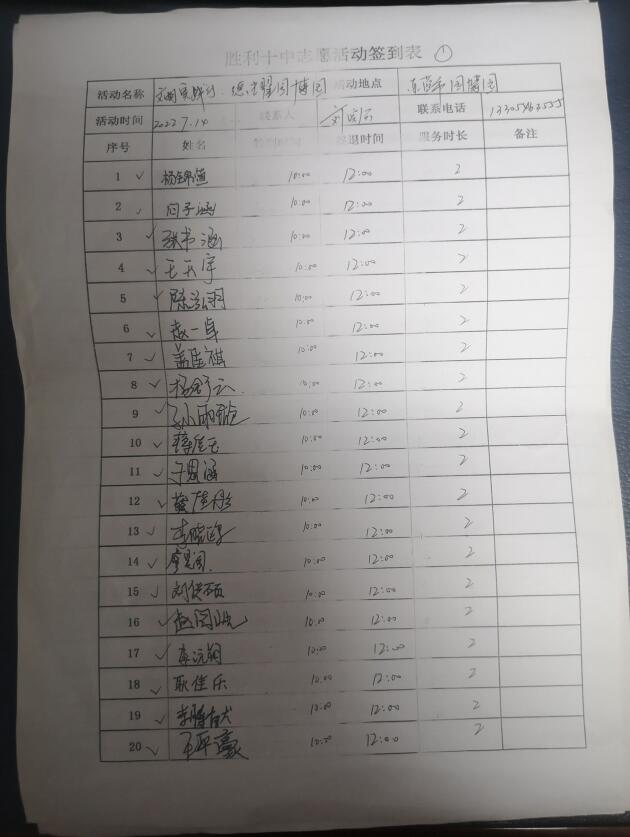 胜利十中志愿活动签到表 ①
活动名称 文明实践行 国博园 活动地点 东营市国博园
活动时间 2022 7.14 联系人 联系电话
序号 姓名 签到时间 签退时间 服务时长 备注
1 ✓ 10:00 12:00 2
2 ✓ 闫子涵 10:00 12:00 2
3 ✓ 张书涵 10:00 12:00 2
4 ✓ 王天宇 10:00 12:00 2
5 ✓ 陈泓羽 10:00 12:00 2
6 ✓ 赵一卓 10:00 12:00 2
7 ✓ 盖佳祺 10:00 12:00 2
8 ✓ 杨舒云 10:00 12:00 2
9 ✓ 孙雨 10:00 12:00 2
10 ✓ 蒋佳 10:00 12:00 2
11 ✓ 于恩涵 10:00 12:00 2
12 ✓ 黄佳彤 10:00 12:00 2
13 ✓ 李 10:00 12:00 2
14 ✓ 10:00 12:00 2
15 ✓ 刘 10:00 12:00 2
16 ✓ 赵 10:00 12:00 2
17 ✓ 李沅润 10:00 12:00 2
18 ✓ 耿佳乐 10:00 12:00 2
19 ✓ 李 10:00 12:00 2
20 ✓ 豪 10:00 12:00 2